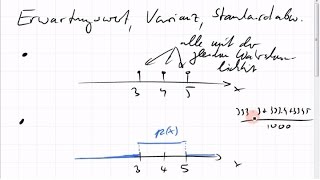 Erwartungswert, Varianz, Standardabw.
alle mit der
gleichen Wahrschein-
lichkeit
3 4 5 x
p(x)
3 4 5 x
1000